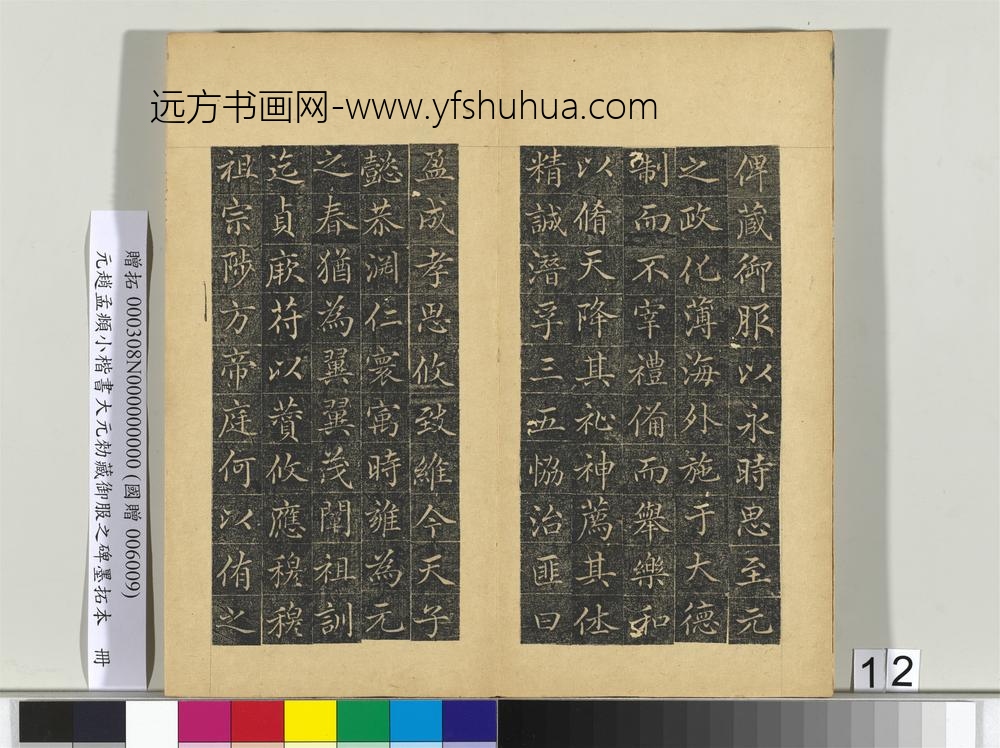 远方书画网-www.yfshuhua.com
俾蔵御服以永時思至元
之政化薄海外施于大德
制而不宰禮備而舉樂和
以脩天降其祕神薦其休
精誠潛孚三五恊治匪曰
盈成孝思攸致維今天子
懿恭淵仁寰寓時雍為元
之春猶為翼翼茂闡祖訓
迄貞厥苻以賛攸應穆穆
祖宗陟方帝庭何以侑之
贈拓 000308N000000000 (國贈 006009)
元趙孟頫小楷書大元勑藏御服之碑墨拓本 冊
12